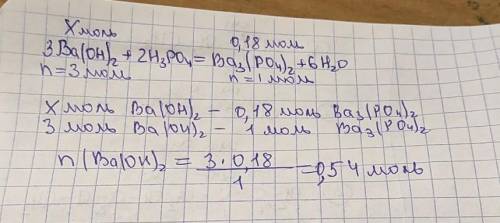 X моль 0,18 мол
3Ba(OH)₂ + 2H₃PO₄ = Ba₃(PO₄)₂ + 6H₂O
n = 3 мол n = 1 мол
X моль Ba(OH)₂ – 0,18 моль Ba₃(PO₄)₂
3 моль Ba(OH)₂ – 1 моль Ba₃(PO₄)₂
n(Ba(OH)₂ = 3 · 0,18 / 1 = 0,54 моль